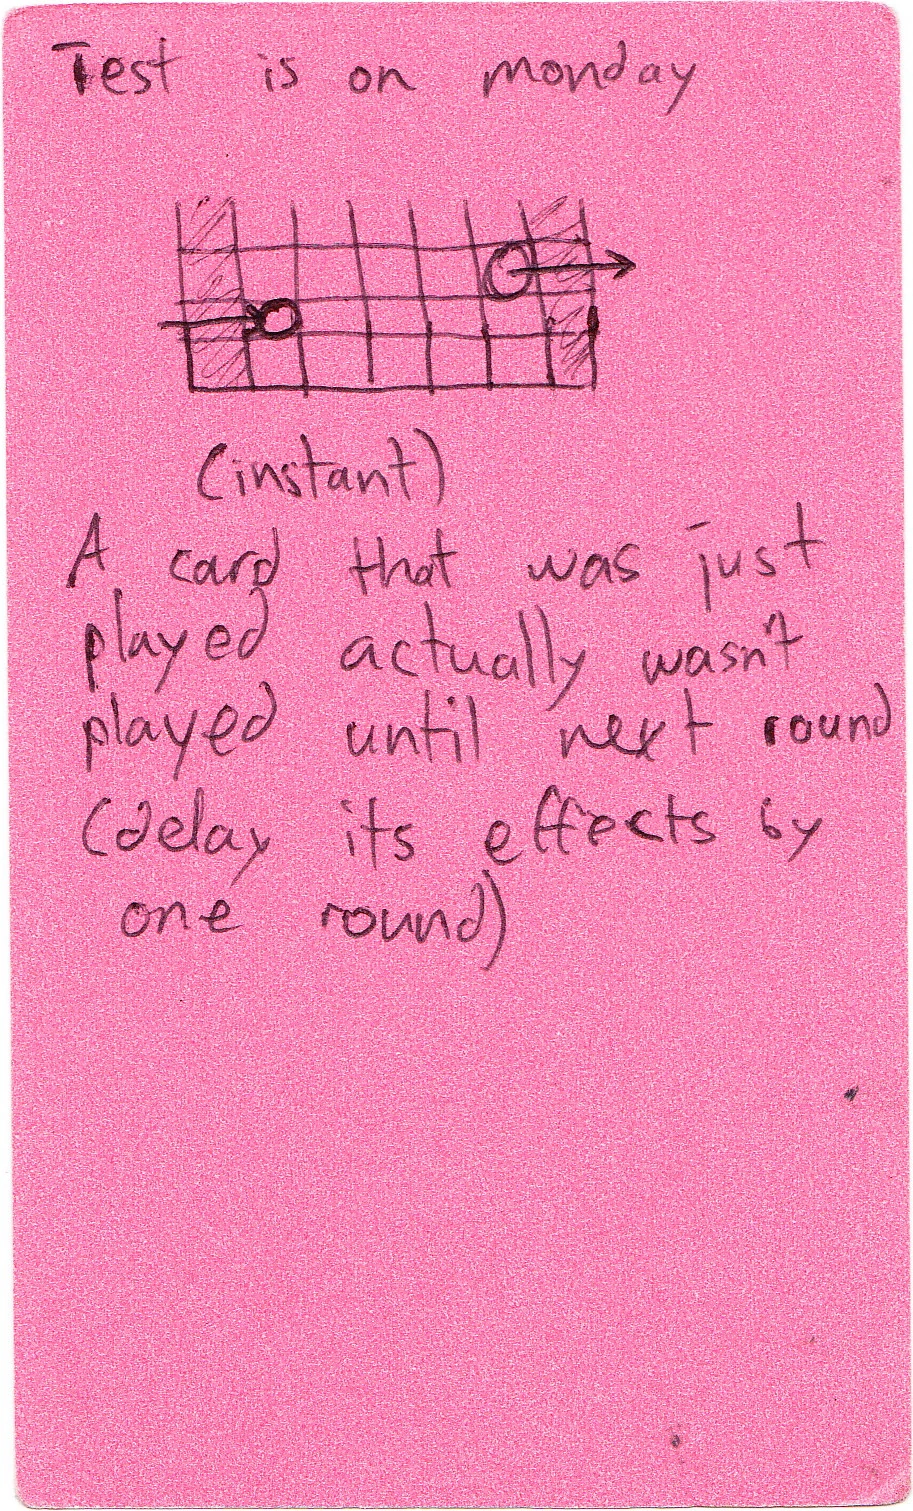 Test is on monday
(instant)
A card that was just
played actually wasn't
played until next round
(delay its effects by
one round)